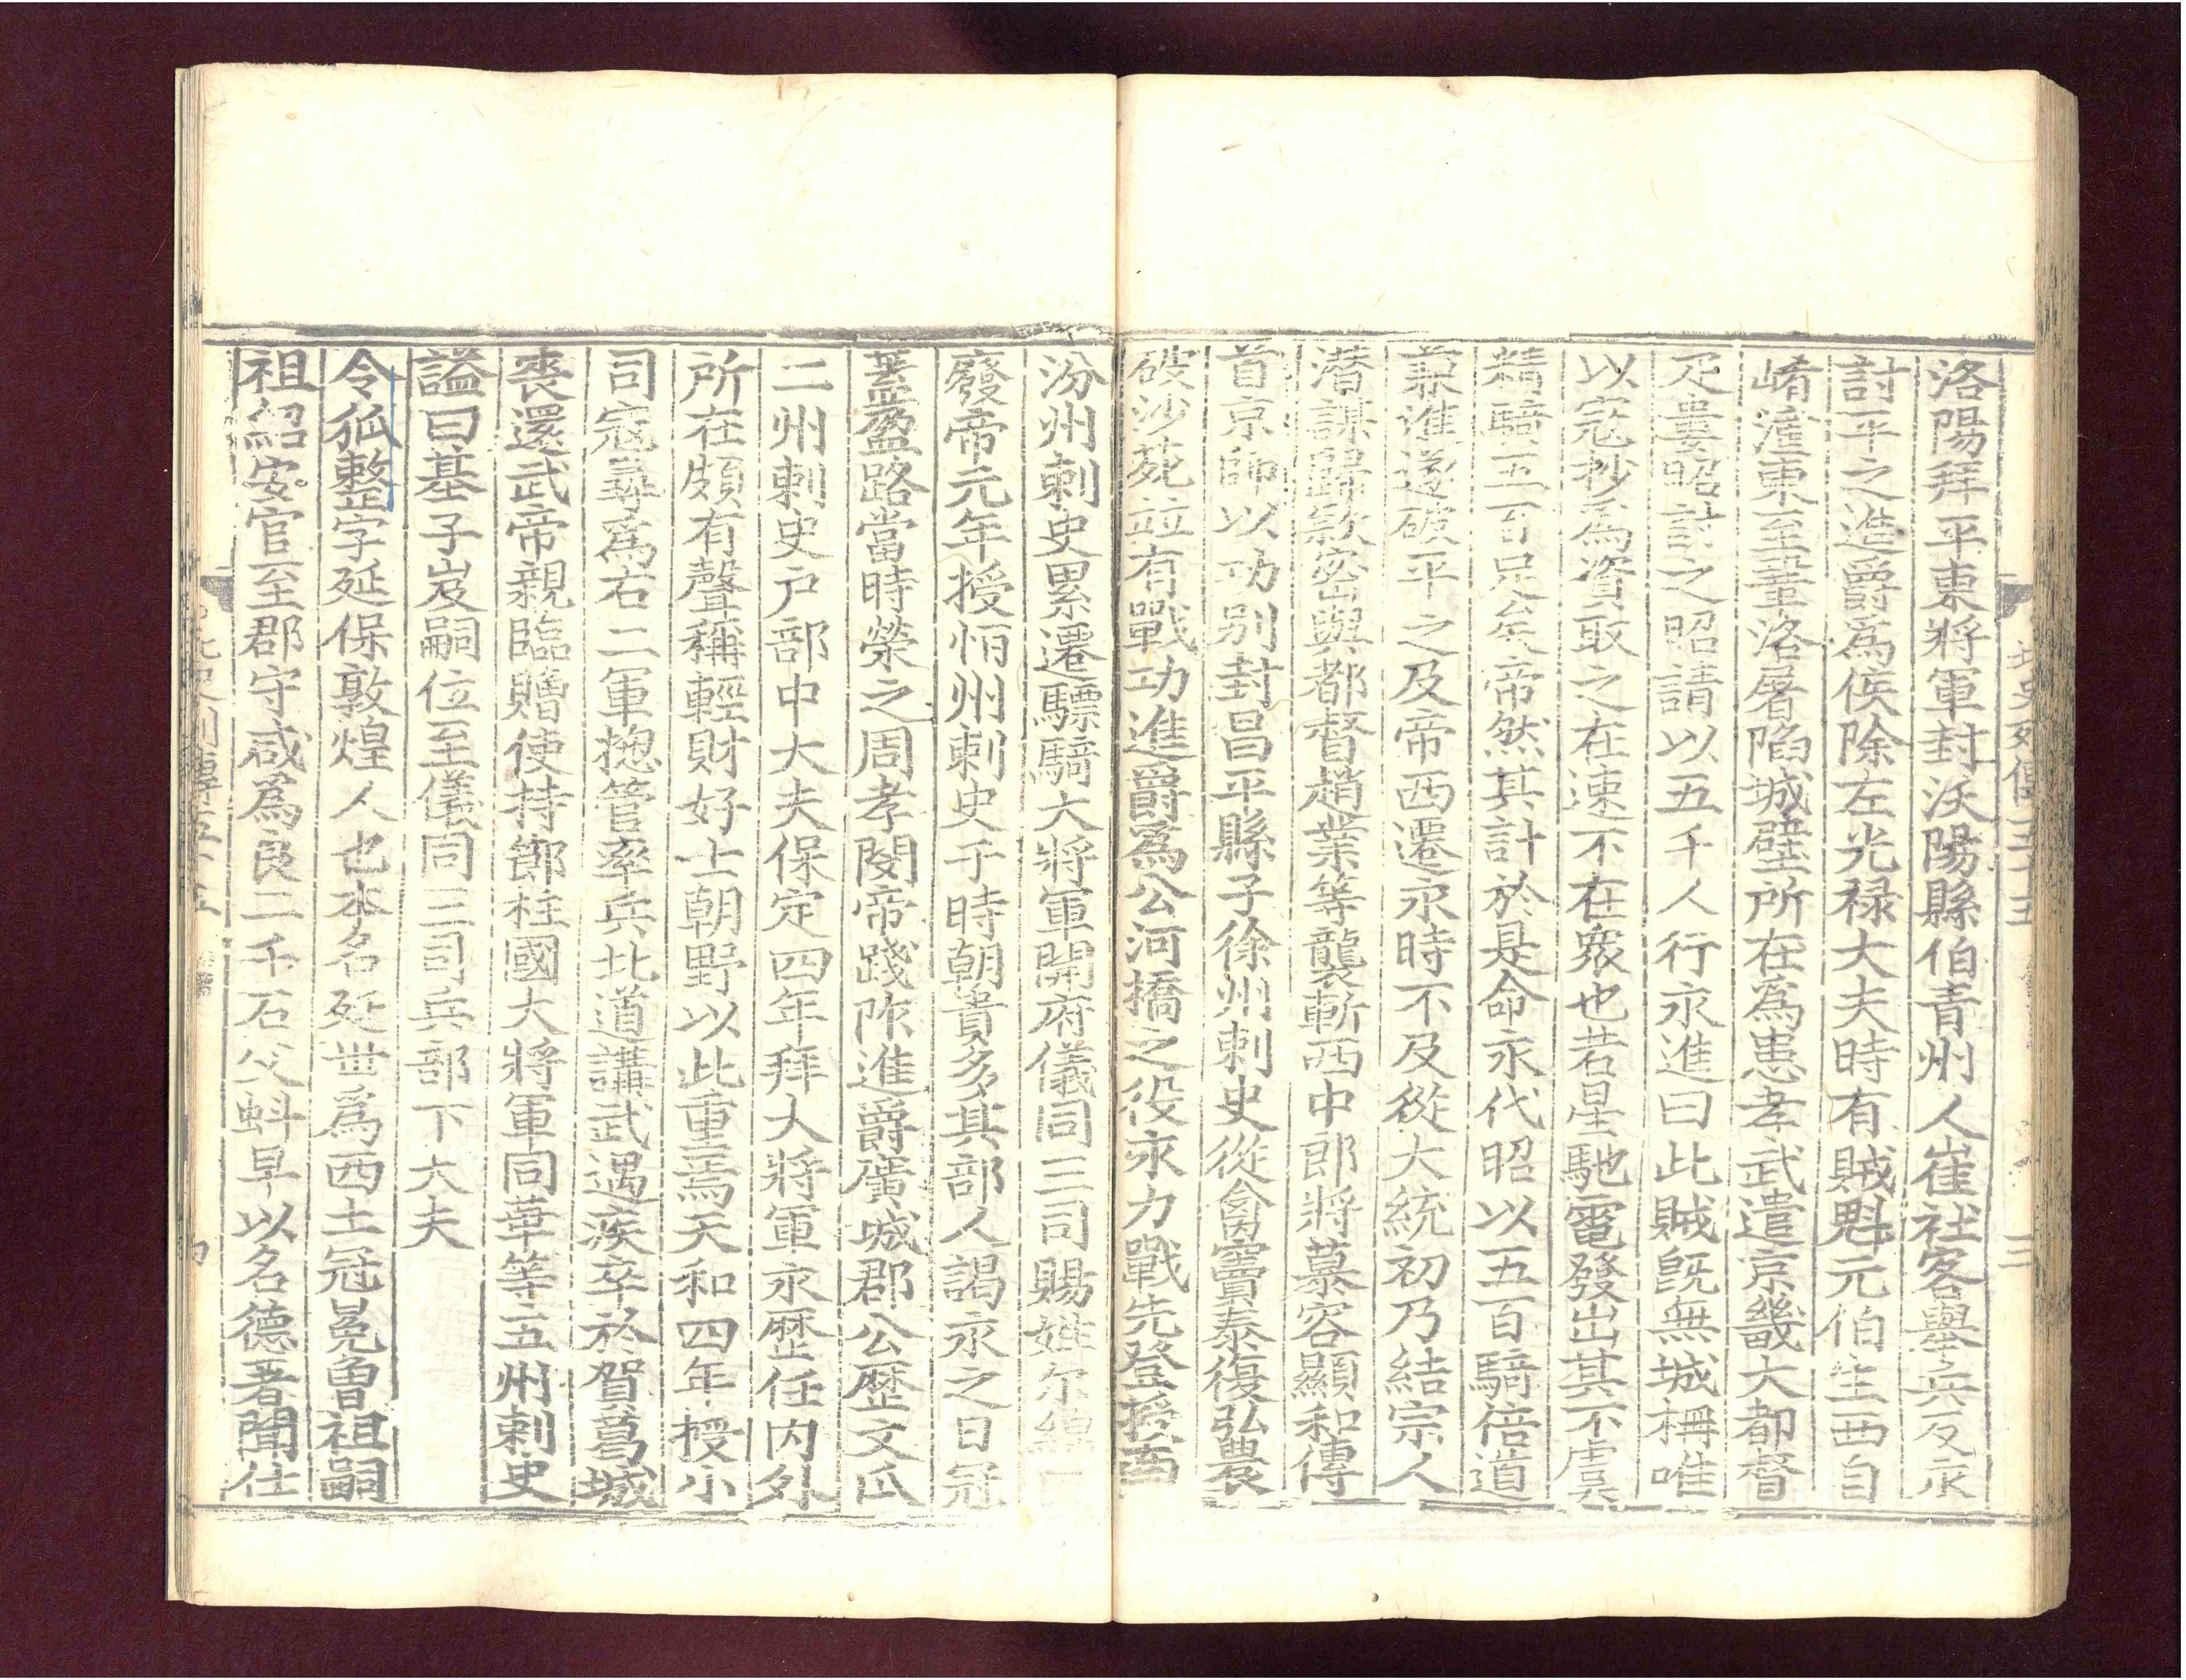 北史列傳五十五 三
洛陽拜平東將軍封沃陽縣伯青州人崔社客舉兵反永
討平之進爵爲侯除左光禄大夫時有賊魁元伯生西自
崤潼東至鞏洛屠陷城壁所在爲患孝武遣京畿大都督
疋婁昭討之昭請以五千人行永進曰此賊旣無城栅唯
以寇抄爲資取之在速不在衆也若星馳電發出其不虞
精騎五百足矣帝然其計於是命永代昭以五百騎倍道
兼進遂破平之及帝西遷永時不及從大統初乃結宗人
潜謀歸款密與都督趙業等襲斬西中郎將慕容顯和傳
首京師以功别封昌平縣子徐州刺史從禽竇泰復弘農
破沙苑並有戰功進爵爲公河橋之役永力戰先登授南
汾州刺史累遷驃騎大將軍開府儀同三司賜姓尔綿
廢帝元年授恒州刺史于時朝貴多其部人謁永之日冠
蓋盈路當時榮之周孝閔帝踐阼進爵廣城郡公歷文瓜
二州刺史户部中大夫保定四年拜大將軍永歷任内外
所在頗有聲稱輕財好士朝野以此重焉天和四年授小
司寇尋爲右二軍揔管率兵北道講武遇疾卒於賀葛城
喪還武帝親臨贈使持節柱國大將軍同華等五州刺史
謚曰基子岌嗣位至儀同三司兵部下大夫
令狐整字延保敦煌人也本名延世爲西土冠冕曾祖嗣
祖紹安官至郡守咸爲良二千石父虯早以名德著聞仕
北史列傳五十五